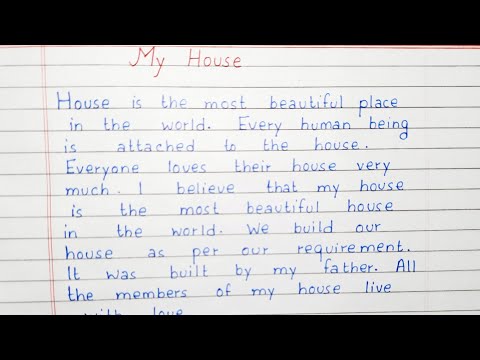 My House
House is the most beautiful place
in the world. Every human being
is attached to the house.
Everyone loves their house very
much. I believe that my house
is the most beautiful house
in the world. We build our
house as per our requirement.
It was built by my father. All
the members of my house live
with love